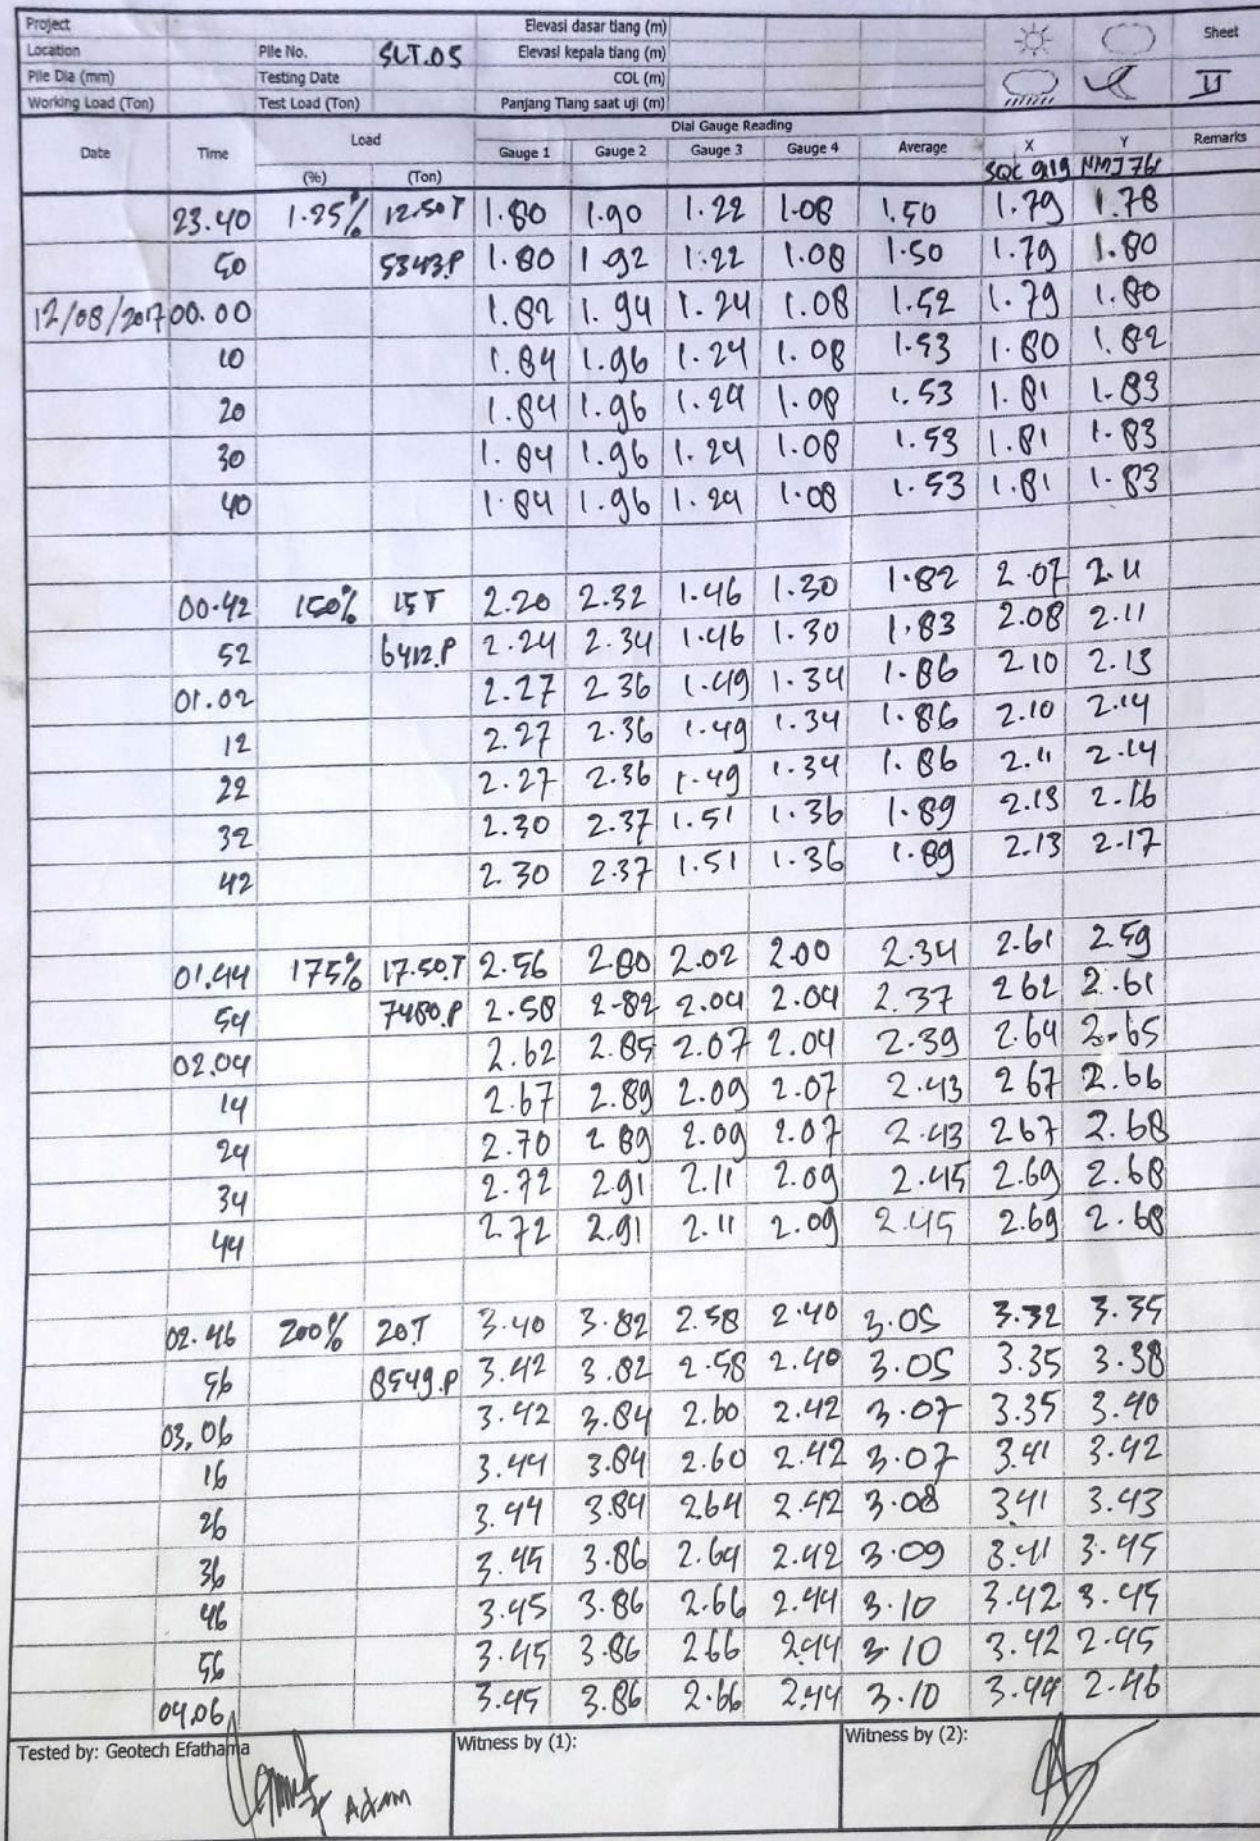 Project Elevasi dasar tiang (m) Sheet
Location Pile No. SLT.05 Elevasi kepala tiang (m)
Pile Dia (mm) Testing Date COL (m) II
Working Load (Ton) Test Load (Ton) Panjang Tiang saat uji (m)
Dial Gauge Reading
Date Time Load Gauge 1 Gauge 2 Gauge 3 Gauge 4 Average X Y Remarks
(%) (Ton) SQC 919 NMJ 761
23.40 1.25% 12.50T 1.80 1.90 1.22 1.08 1.50 1.79 1.78
50 5343.P 1.80 1.92 1.22 1.08 1.50 1.79 1.80
12/08/2017 00.00 1.82 1.94 1.24 1.08 1.52 1.79 1.80
10 1.84 1.96 1.24 1.08 1.53 1.80 1.82
20 1.84 1.96 1.24 1.08 1.53 1.81 1.83
30 1.84 1.96 1.24 1.08 1.53 1.81 1.83
40 1.84 1.96 1.24 1.08 1.53 1.81 1.83
00.42 150% 15T 2.20 2.32 1.46 1.30 1.82 2.07 2.11
52 6412.P 2.24 2.34 1.46 1.30 1.83 2.08 2.11
01.02 2.27 2.36 1.49 1.34 1.86 2.10 2.13
12 2.27 2.36 1.49 1.34 1.86 2.10 2.14
22 2.27 2.36 1.49 1.34 1.86 2.11 2.14
32 2.30 2.37 1.51 1.36 1.89 2.13 2.16
42 2.30 2.37 1.51 1.36 1.89 2.13 2.17
01.44 175% 17.50.T 2.56 2.80 2.02 2.00 2.34 2.61 2.59
54 7480.P 2.58 2.82 2.04 2.04 2.37 2.62 2.61
02.04 2.62 2.85 2.07 2.04 2.39 2.64 2.65
14 2.67 2.89 2.09 2.07 2.43 2.67 2.66
24 2.70 2.89 2.09 2.07 2.43 2.67 2.68
34 2.72 2.91 2.11 2.09 2.45 2.69 2.68
44 2.72 2.91 2.11 2.09 2.45 2.69 2.68
02.46 200% 20T 3.40 3.82 2.58 2.40 3.05 3.32 3.35
56 8549.P 3.42 3.82 2.58 2.40 3.05 3.35 3.38
03.06 3.42 3.84 2.60 2.42 3.07 3.35 3.40
16 3.44 3.84 2.60 2.42 3.07 3.41 3.42
26 3.44 3.84 2.64 2.42 3.08 3.41 3.43
36 3.45 3.86 2.64 2.42 3.09 3.41 3.45
46 3.45 3.86 2.66 2.44 3.10 3.42 3.45
56 3.45 3.86 2.66 2.44 3.10 3.42 2.45
04.06 3.45 3.86 2.66 2.44 3.10 3.44 2.46
Tested by: Geotech Efathama Witness by (1): Witness by (2):
Adam